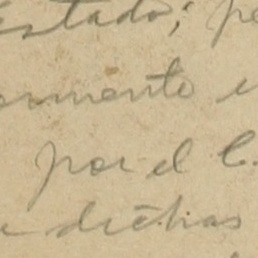 estado; pe
ermento e
por el C.
e dichas